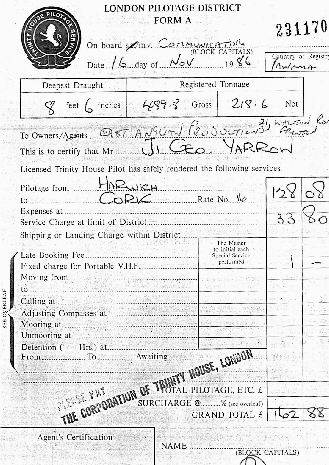 LONDON PILOTAGE DISTRICT
FORM A
TRINITY HOUSE PILOTAGE
231170
On board m.v. COMMUNICATOR
(BLOCK CAPITALS)
Date 16 day of NOV 1986
Country of Registry
PANAMA
Deepest Draught
Registered Tonnage
8 feet 6 inches
489.3 Gross 218.6 Net
To Owners/Agents EAST ANGLIA PRODUCTIONS 21, WALTON Rd
FRINTON
This is to certify that Mr J. GEO YARROW
Licensed Trinity House Pilot has safely rendered the following services
Pilotage from HARWICH
to CORK Rate No.
128 08
Expenses at
Service Charge at limit of District
33 80
Shipping or Landing Charge within District
The Master
to initial each
Special Service
performed
Late Booking Fee
Fixed charge for Portable V.H.F. 1 -
Moving from
to
Calling at
Adjusting Compasses at
Mooring at
Unmooring at
Detention ( Hrs.) at
From To Awaiting
SEE OVERLEAF
PLEASE PAY
THE CORPORATION OF TRINITY HOUSE, LONDON
TOTAL PILOTAGE, ETC. £
SURCHARGE @ % (see overleaf)
GRAND TOTAL £ 162 88
Agent's Certification
NAME
(BLOCK CAPITALS)